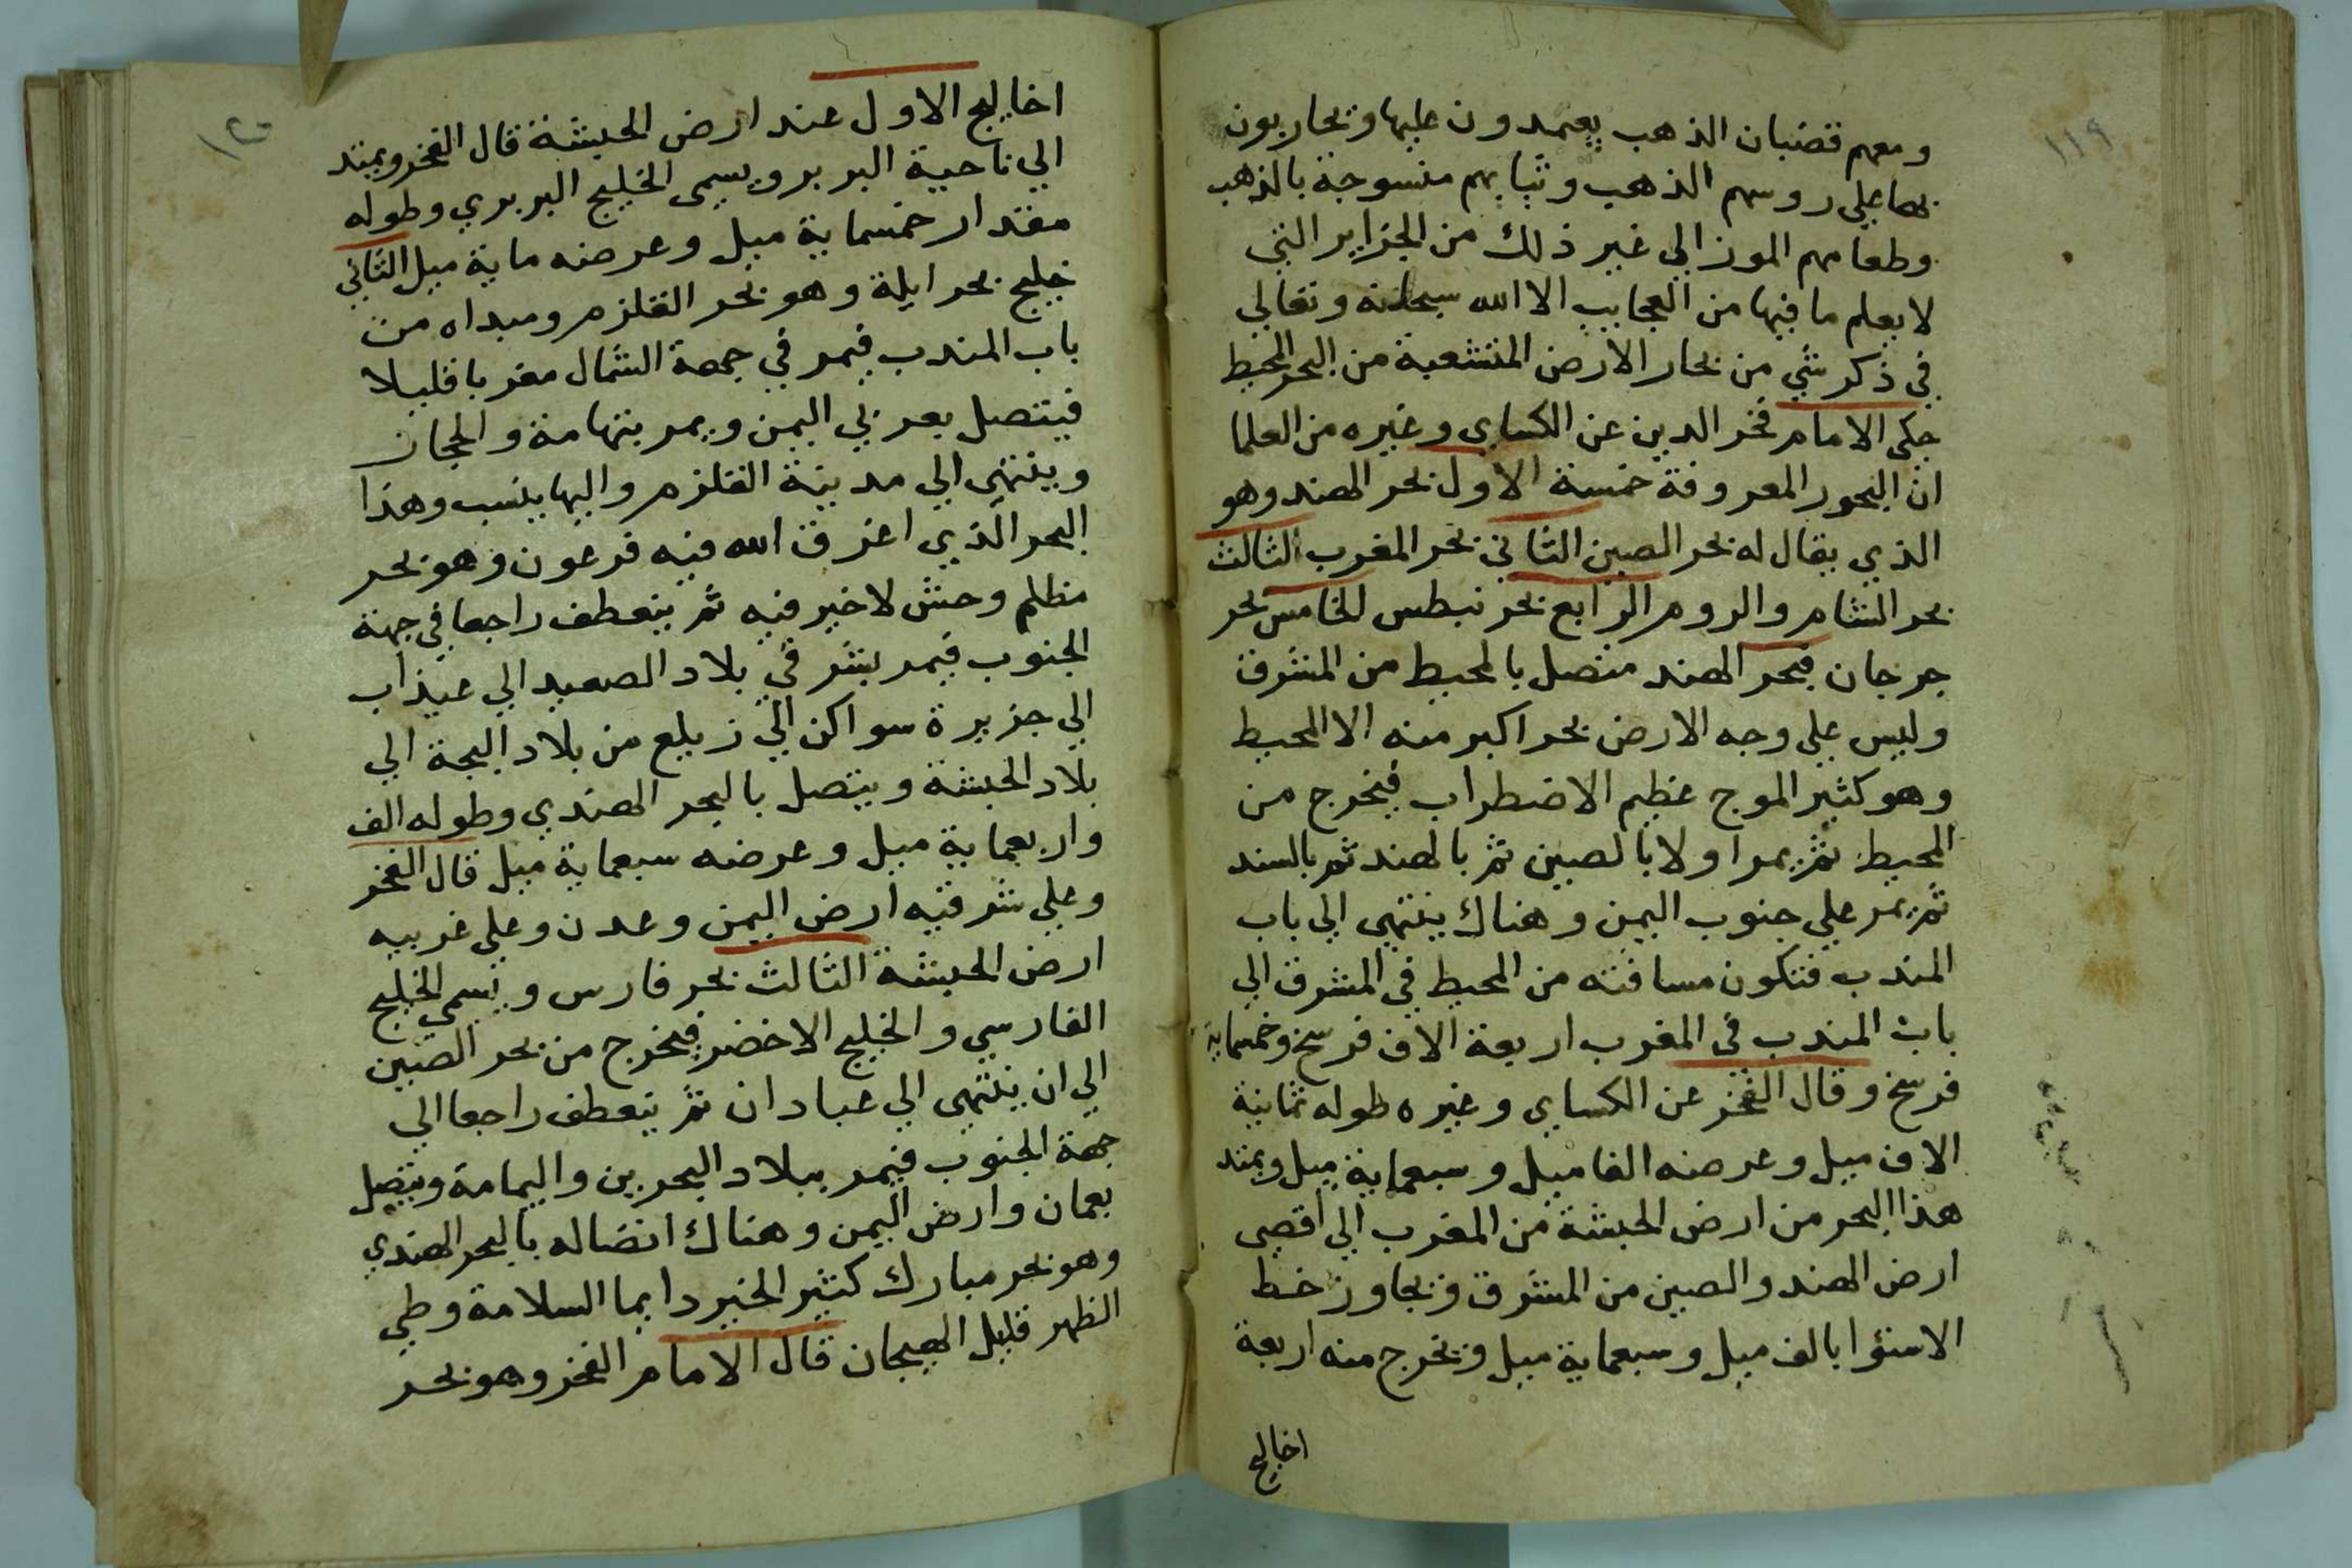 ١١٩
ومعهم قضبان الذهب يعتمدون عليها ويحاربون
بها علي روسهم الذهب وثيابهم منسوجة بالذهب
وطعامهم الموز الي غير ذلك من الجزاير التي
لا يعلم ما فيها من العجايب الا الله سبحانه وتعالي
في ذكر شي من بحار الارض المتشعبة من البحر المحيط
حكي الامام فخر الدين عن الكساي وغيره من العلما
ان البحور المعروفة خمسة الاول بحر الهند وهو
الذي يقال له بحر الصين الثاني بحر المغرب الثالث
بحر الشام والروم الرابع بحر نيطس الخامس بحر
جرجان فبحر الهند متصل بالمحيط من المشرق
وليس علي وجه الارض بحر اكبر منه الا المحيط
وهو كثير الموج عظيم الاضطراب فيخرج من
المحيط ثم يمر اولا بالصين ثم بالهند ثم بالسند
ثم يمر علي جنوب اليمن وهناك ينتهي الي باب
المندب فتكون مسافته من المحيط في المشرق الي
باب المندب في المغرب اربعة الاف فرسخ وخمسماية
فرسخ وقال الفخر عن الكساي وغيره طوله ثمانية
الاف ميل وعرضه الفا ميل وسبعماية ميل ويمتد
هذا البحر من ارض الحبشة من المغرب الي اقصي
ارض الهند والصين من المشرق ويجاوز خط
الاستوا بالف ميل وسبعماية ميل ويخرج منه اربعة
اخاليج
١٢٠
اخاليج الاول عند ارض الحبشة قال الفخر ويمتد
الي ناحية البربر ويسمي الخليج البربري وطوله
مقدار خمسماية ميل وعرضه ماية ميل الثاني
خليج بحر ايلة وهو بحر القلزم ومبداه من
باب المندب فيمر في جهة الشمال مغربا قليلا
فيتصل بغربي اليمن ويمر بتهامة والحجاز
وينتهي الي مدينة القلزم واليها ينسب وهذا
البحر الذي اغرق الله فيه فرعون وهو بحر
مظلم وحش لا خير فيه ثم ينعطف راجعا في جهة
الجنوب فيمر بشرقي بلاد الصعيد الي عيذاب
الي جزيرة سواكن الي زيلع من بلاد البجة الي
بلاد الحبشة ويتصل بالبحر الهندي وطوله الف
واربعماية ميل وعرضه سبعماية ميل قال الفخر
وعلي شرقيه ارض اليمن وعدن وعلي غربيه
ارض الحبشة الثالث بحر فارس ويسمي الخليج
الفارسي والخليج الاخضر فيخرج من بحر الصين
الي ان ينتهي الي عبادان ثم ينعطف راجعا الي
جهة الجنوب فيمر ببلاد البحرين واليمامة ويتصل
بعمان وارض اليمن وهناك اتصاله بالبحر الهندي
وهو بحر مبارك كثير الخير دايما السلامة وطي
الظهر قليل الهيجان قال الامام الفخر وهو بحر